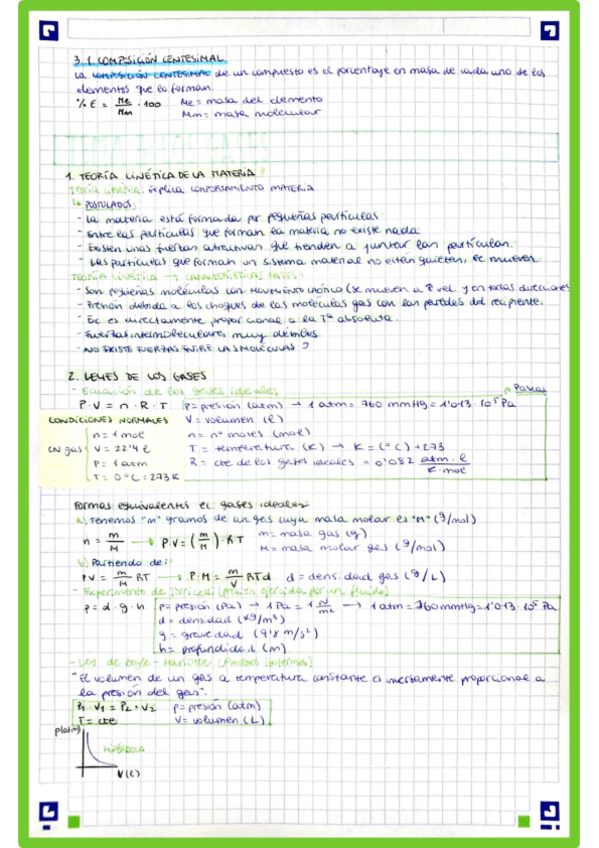 3.1. COMPOSICIÓN CENTESIMAL
La COMPOSICIÓN CENTESIMAL de un compuesto es el porcentaje en masa de cada uno de los
elementos que lo forman.
% E = Me/Mm · 100 Me = masa del elemento
Mm = masa molecular
1. TEORÍA CINÉTICA DE LA MATERIA
Teoría cinética: explica COMPORTAMIENTO MATERIA
↳ POSTULADOS:
- La materia está formada por pequeñas partículas
- Entre las partículas que forman la materia no existe nada
- Existen unas fuerzas atractivas que tienden a juntar las partículas.
- Las partículas que forman un sistema material no están quietas, se mueven
TEORÍA CINÉTICA → CARACTERÍSTICAS GASES:
- Son pequeñas moléculas con MOVIMIENTO CAÓTICO (se mueven a ↑ vel. y en todas direcciones
- Presión debida a los choques de las moléculas gas con las paredes del recipiente.
- Ec es directamente proporcional a la Tª absoluta.
- Fuerzas intermoleculares muy débiles
- NO EXISTE FUERZAS ENTRE LAS MOLÉCULAS ?
2. LEYES DE LOS GASES
- Ecuación de los gases ideales
→ Pascal
P·V = n·R·T P = presión (atm) → 1 atm = 760 mmHg = 1'013·10⁵ Pa
CONDICIONES NORMALES V = volumen (l)
n = 1 mol n = nº moles (mol)
CN gas V = 22'4 l T = temperatura (K) → K = (ºC) + 273
P = 1 atm R = cte de los gases ideales = 0'082 atm·l/K·mol
T = 0ºC = 273 K
Formas equivalentes ec. gases ideales
a) Tenemos "m" gramos de un gas cuya masa molar es "M" (g/mol)
n = m/M → P·V = (m/M)·RT m = masa gas (g)
M = masa molar gas (g/mol)
b) Partiendo de:
PV = m/M RT → P·M = m/V RTd d = densidad gas (g/L)
- Experimento de Torricelli (presión ejercida por un fluido)
p = d·g·h p = presión (Pa) → 1 Pa = 1 N/m² → 1 atm = 760 mmHg = 1'013·10⁵ Pa
d = densidad (kg/m³)
g = gravedad (9'8 m/s²)
h = profundidad (m)
- Ley de Boyle - Mariotte (Procesos isotermos)
"El volumen de un gas a temperatura constante es inversamente proporcional a
la presión del gas".
P₁·V₁ = P₂·V₂ p = presión (atm)
T = cte V = volumen (L)
p(atm)
HIPÉRBOLA
V(l)